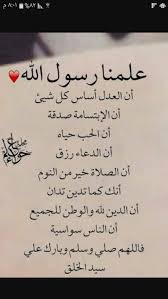 ٨:٠١ م
٨٢٪
علمنا رسول الله
أن العدل أساس كل شيئ
أن الإبتسامة صدقة
أن الحب حياه
أن الدعاء رزق
أن الصلاة خير من النوم
أنك كما تدين تدان
أن الدين لله والوطن للجميع
أن الناس سواسية
فاللهم صلي وسلم وبارك علي
سيد الخلق